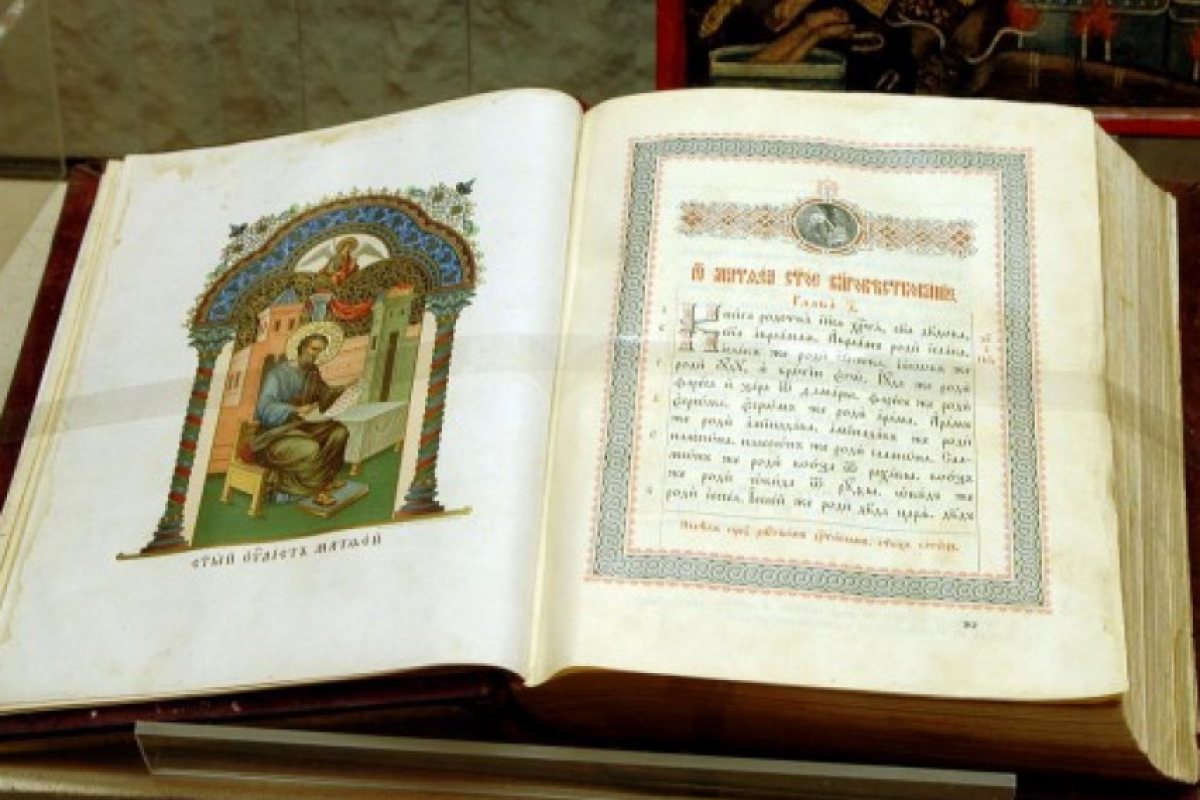 СТЫ́Й ЕѴ҃ЛИСТЪ МАТѲЕЙ
Ѿ МАТѲЕА СТ҃ОЕ БЛ҃ГОВѢСТВОВАНІЕ
Глава а҃
Книга родства іи҃са хр҃та, сн҃а дв҃дова,
сн҃а авраамлѧ. Авраамъ роди ісаака.
ісаакъ же роди іакѡва. іакѡвъ же
роди іꙋдꙋ, и братїю єгѡ. Іꙋда же роди
фареса и зара ѿ ѳамары. фаресъ же роди
єсрѡма. єсрѡмъ же роди арама. Арамъ
же роди амінадава. амінадавъ же роди
наассѡна. наассѡнъ же роди салмѡна. Сал-
мѡнъ же роди вооза ѿ рахавы. воозъ
же роди ѡвида ѿ рꙋѳы. ѡвидъ же
роди іессеа. Іессей же роди дв҃да царѧ. дв҃дъ